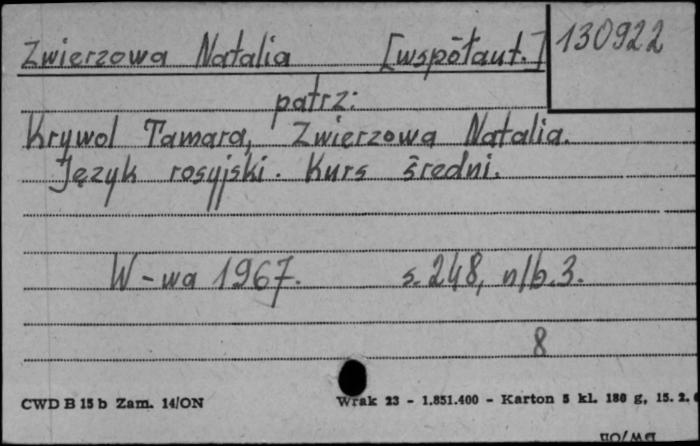 Zwierzowa Natalia [współaut.] 130922
patrz:
Krywol Tamara, Zwierzowa Natalia.
Język rosyjski. Kurs średni.
W-wa 1967. s. 248, nlb. 3.
8
CWD B 15 b Zam. 14/ON Wrak 23 - 1.851.400 - Karton 5 kl. 180 g, 15. 2.